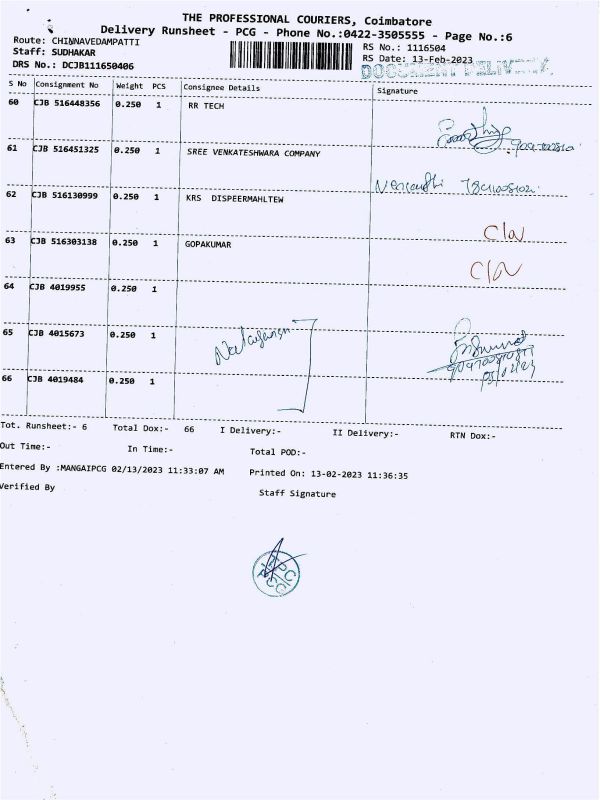 THE PROFESSIONAL COURIERS, Coimbatore
Delivery Runsheet - PCG - Phone No.:0422-3505555 - Page No.:6
Route: CHINNAVEDAMPATTI
Staff: SUDHAKAR
DRS No.: DCJB111650406
RS No.: 1116504
RS Date: 13-Feb-2023
DOCUMENT DELIVERY
S No Consignment No Weight PCS Consignee Details Signature
60 CJB 516448356 0.250 1 RR TECH
61 CJB 516451325 0.250 1 SREE VENKATESHWARA COMPANY
62 CJB 516130999 0.250 1 KRS DISPEERMAHLTEW
63 CJB 516303138 0.250 1 GOPAKUMAR
64 CJB 4019955 0.250 1
65 CJB 4015673 0.250 1
66 CJB 4019484 0.250 1
Tot. Runsheet:- 6 Total Dox:- 66 I Delivery:- II Delivery:- RTN Dox:-
Out Time:- In Time:- Total POD:-
Entered By :MANGAIPCG 02/13/2023 11:33:07 AM Printed On: 13-02-2023 11:36:35
Verified By Staff Signature